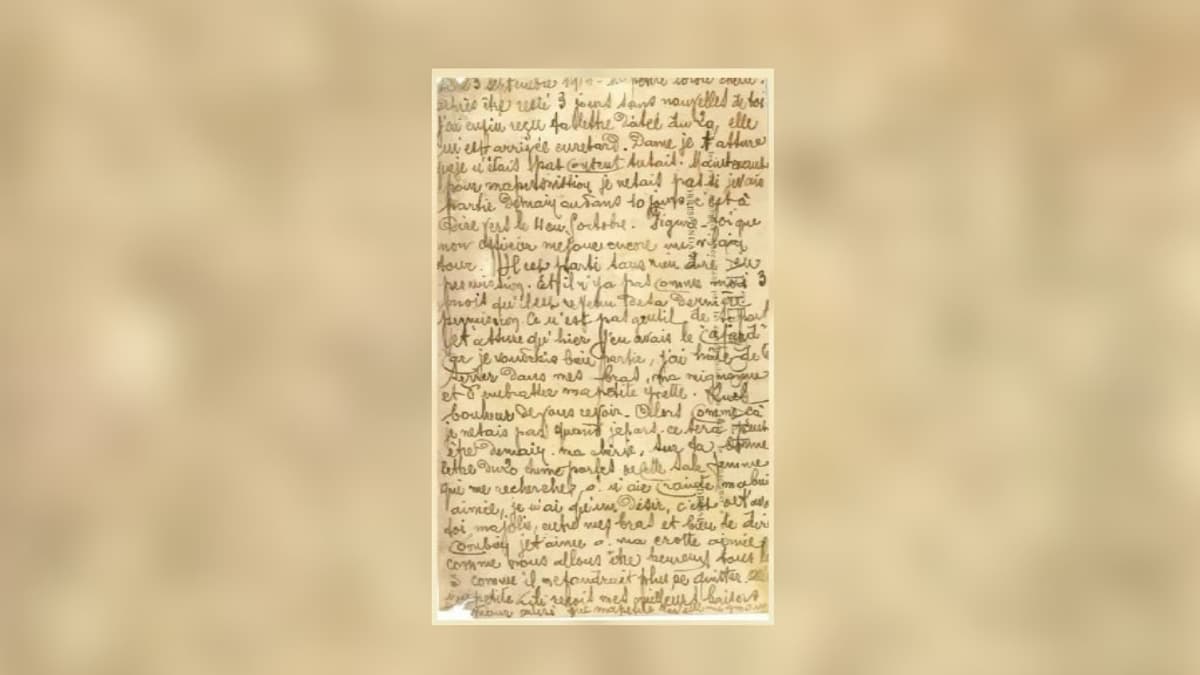 3 septembre 191 petite chérie.
après être resté 3 jours sans nouvelles de toi
j'ai enfin reçu ta lettre datée du 29, elle
est arrivée en retard. Dame je t'assure
que je n'étais pas content du tout. Maintenant
pour ma permission je ne sais pas si je vais
partir demain ou dans 10 jours c'est à
dire vers le 1er octobre. Figure-toi que
mon officier me joue encore un vilain
tour. Il est parti sans rien dire en
permission. Et il n'y a pas comme moi 3
mois qu'il est revenu de sa dernière
permission. Ce n'est pas gentil de sa part
et assure qu'hier j'en avais le cafard
car je voudrais bien partir, j'ai hâte de te
serrer dans mes bras, ma mignonne
et d'embrasser ma petite Yvette. Quel
bonheur de vous revoir. Alors comme ça
je ne sais pas quand je pars. ce sera peut
être demain. ma chérie, sur ta bonne
lettre du 29 tu me parles de cette sale femme
que me recherche, n'aie crainte ma bien
aimée, je n'ai qu'un désir, c'est
toi ma jolie, entre mes bras et bien te dire
combien je t'aime ma crotte aimée
comme nous allons être heureux tous les
3 comme il ne faudrait plus se quitter.
petite reçois mes meilleurs baisers
que ma petite